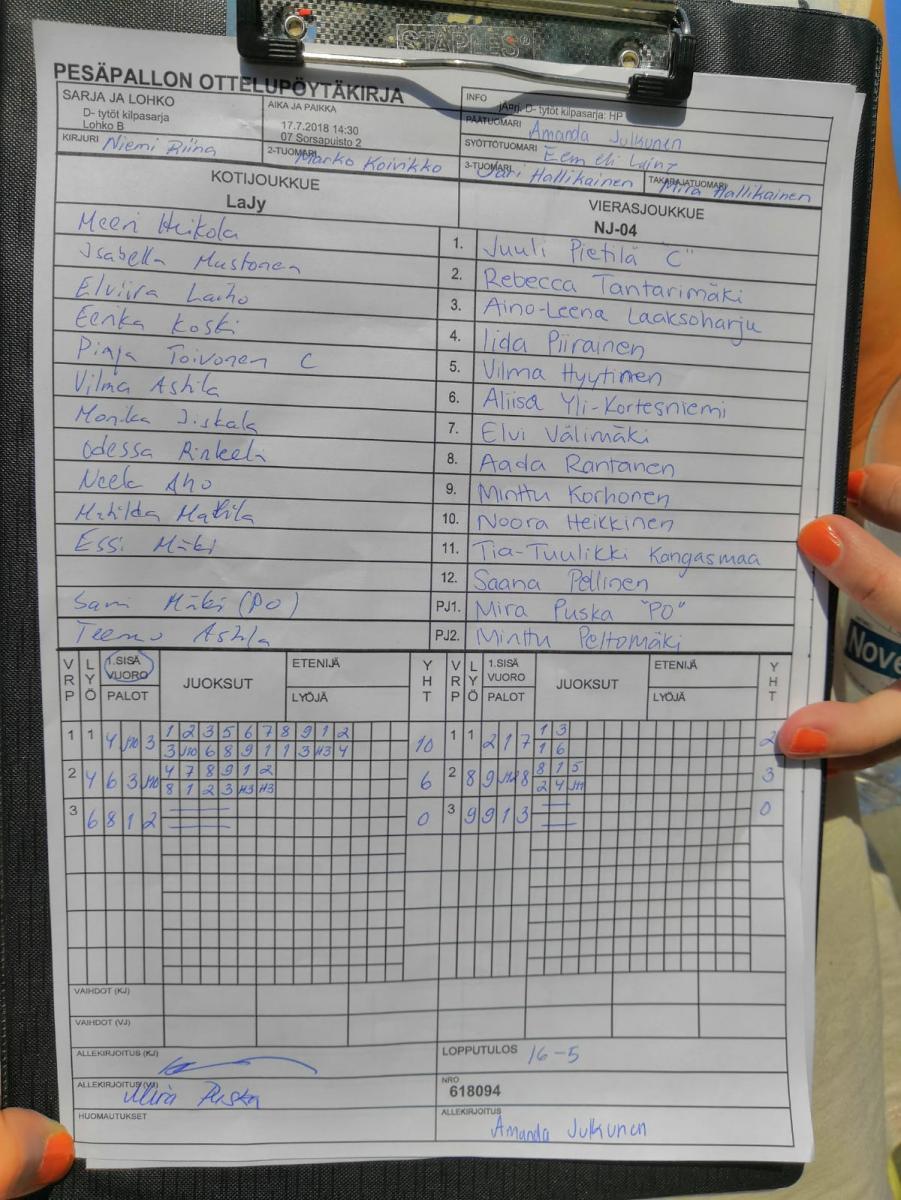 STAPLES®
PESÄPALLON OTTELUPÖYTÄKIRJA
SARJA JA LOHKO
D- tytöt kilpasarja
Lohko B
AIKA JA PAIKKA
17.7.2018 14:30
07 Sorsapuisto 2
INFO
jAnrj. D- tytöt kilpasarja: HP
PÄÄTUOMARI Amanda Julkunen
SYÖTTÖTUOMARI Eemeli
KIRJURI Niemi Riina
2-TUOMARI Marko Koivikko
3-TUOMARI Jari Hallikainen
TAKARAJATUOMARI Mira Hallikainen
KOTIJOUKKUE
LaJy
VIERASJOUKKUE
NJ-04
Meeri Heikola 1. Juuli Pietilä "C"
Isabella Mustonen 2. Rebecca Tantarimäki
Elviira Laiho 3. Aino-Leena Laaksoharju
Eerika Koski 4. Iida Piirainen
Pinja Toivonen C 5. Vilma Hyytinen
Vilma Ashla 6. Aliisa Yli-Kortesniemi
Monika Jiskala 7. Elvi Välimäki
Odessa 8. Aada Rantanen
Neela Aho 9. Minttu Korhonen
Matilda Mattila 10. Noora Heikkinen
Essi Mäki 11. Tia-Tuulikki Kangasmaa
12. Saana Pellinen
Sami Mäki (PO) PJ1. Mira Puska "PO"
Teemu Ashla PJ2. Minttu Peltomäki
VRP LYÖ 1.SISÄ VUORO PALOT JUOKSUT ETENIJÄ LYÖJÄ YHT VRP LYÖ 1.SISÄ VUORO PALOT JUOKSUT ETENIJÄ LYÖJÄ YHT
1 1 4 J10 3 1 2 3 5 6 7 8 9 1 2 10 1 1 2 1 7 1 3 2
3 J10 6 8 9 1 1 3 H3 4 1 6
2 4 6 3 J10 4 7 8 9 1 2 6 2 8 9 J12 8 8 1 5 3
8 1 2 3 H3 H3 2 4 J11
3 6 8 1 2 0 3 9 9 1 3 0
VAIHDOT (KJ)
VAIHDOT (VJ)
ALLEKIRJOITUS (KJ)
LOPPUTULOS 16-5
ALLEKIRJOITUS (VJ) Mira Puska
NRO
618094
HUOMAUTUKSET
ALLEKIRJOITUS
Amanda Julkunen
Nove